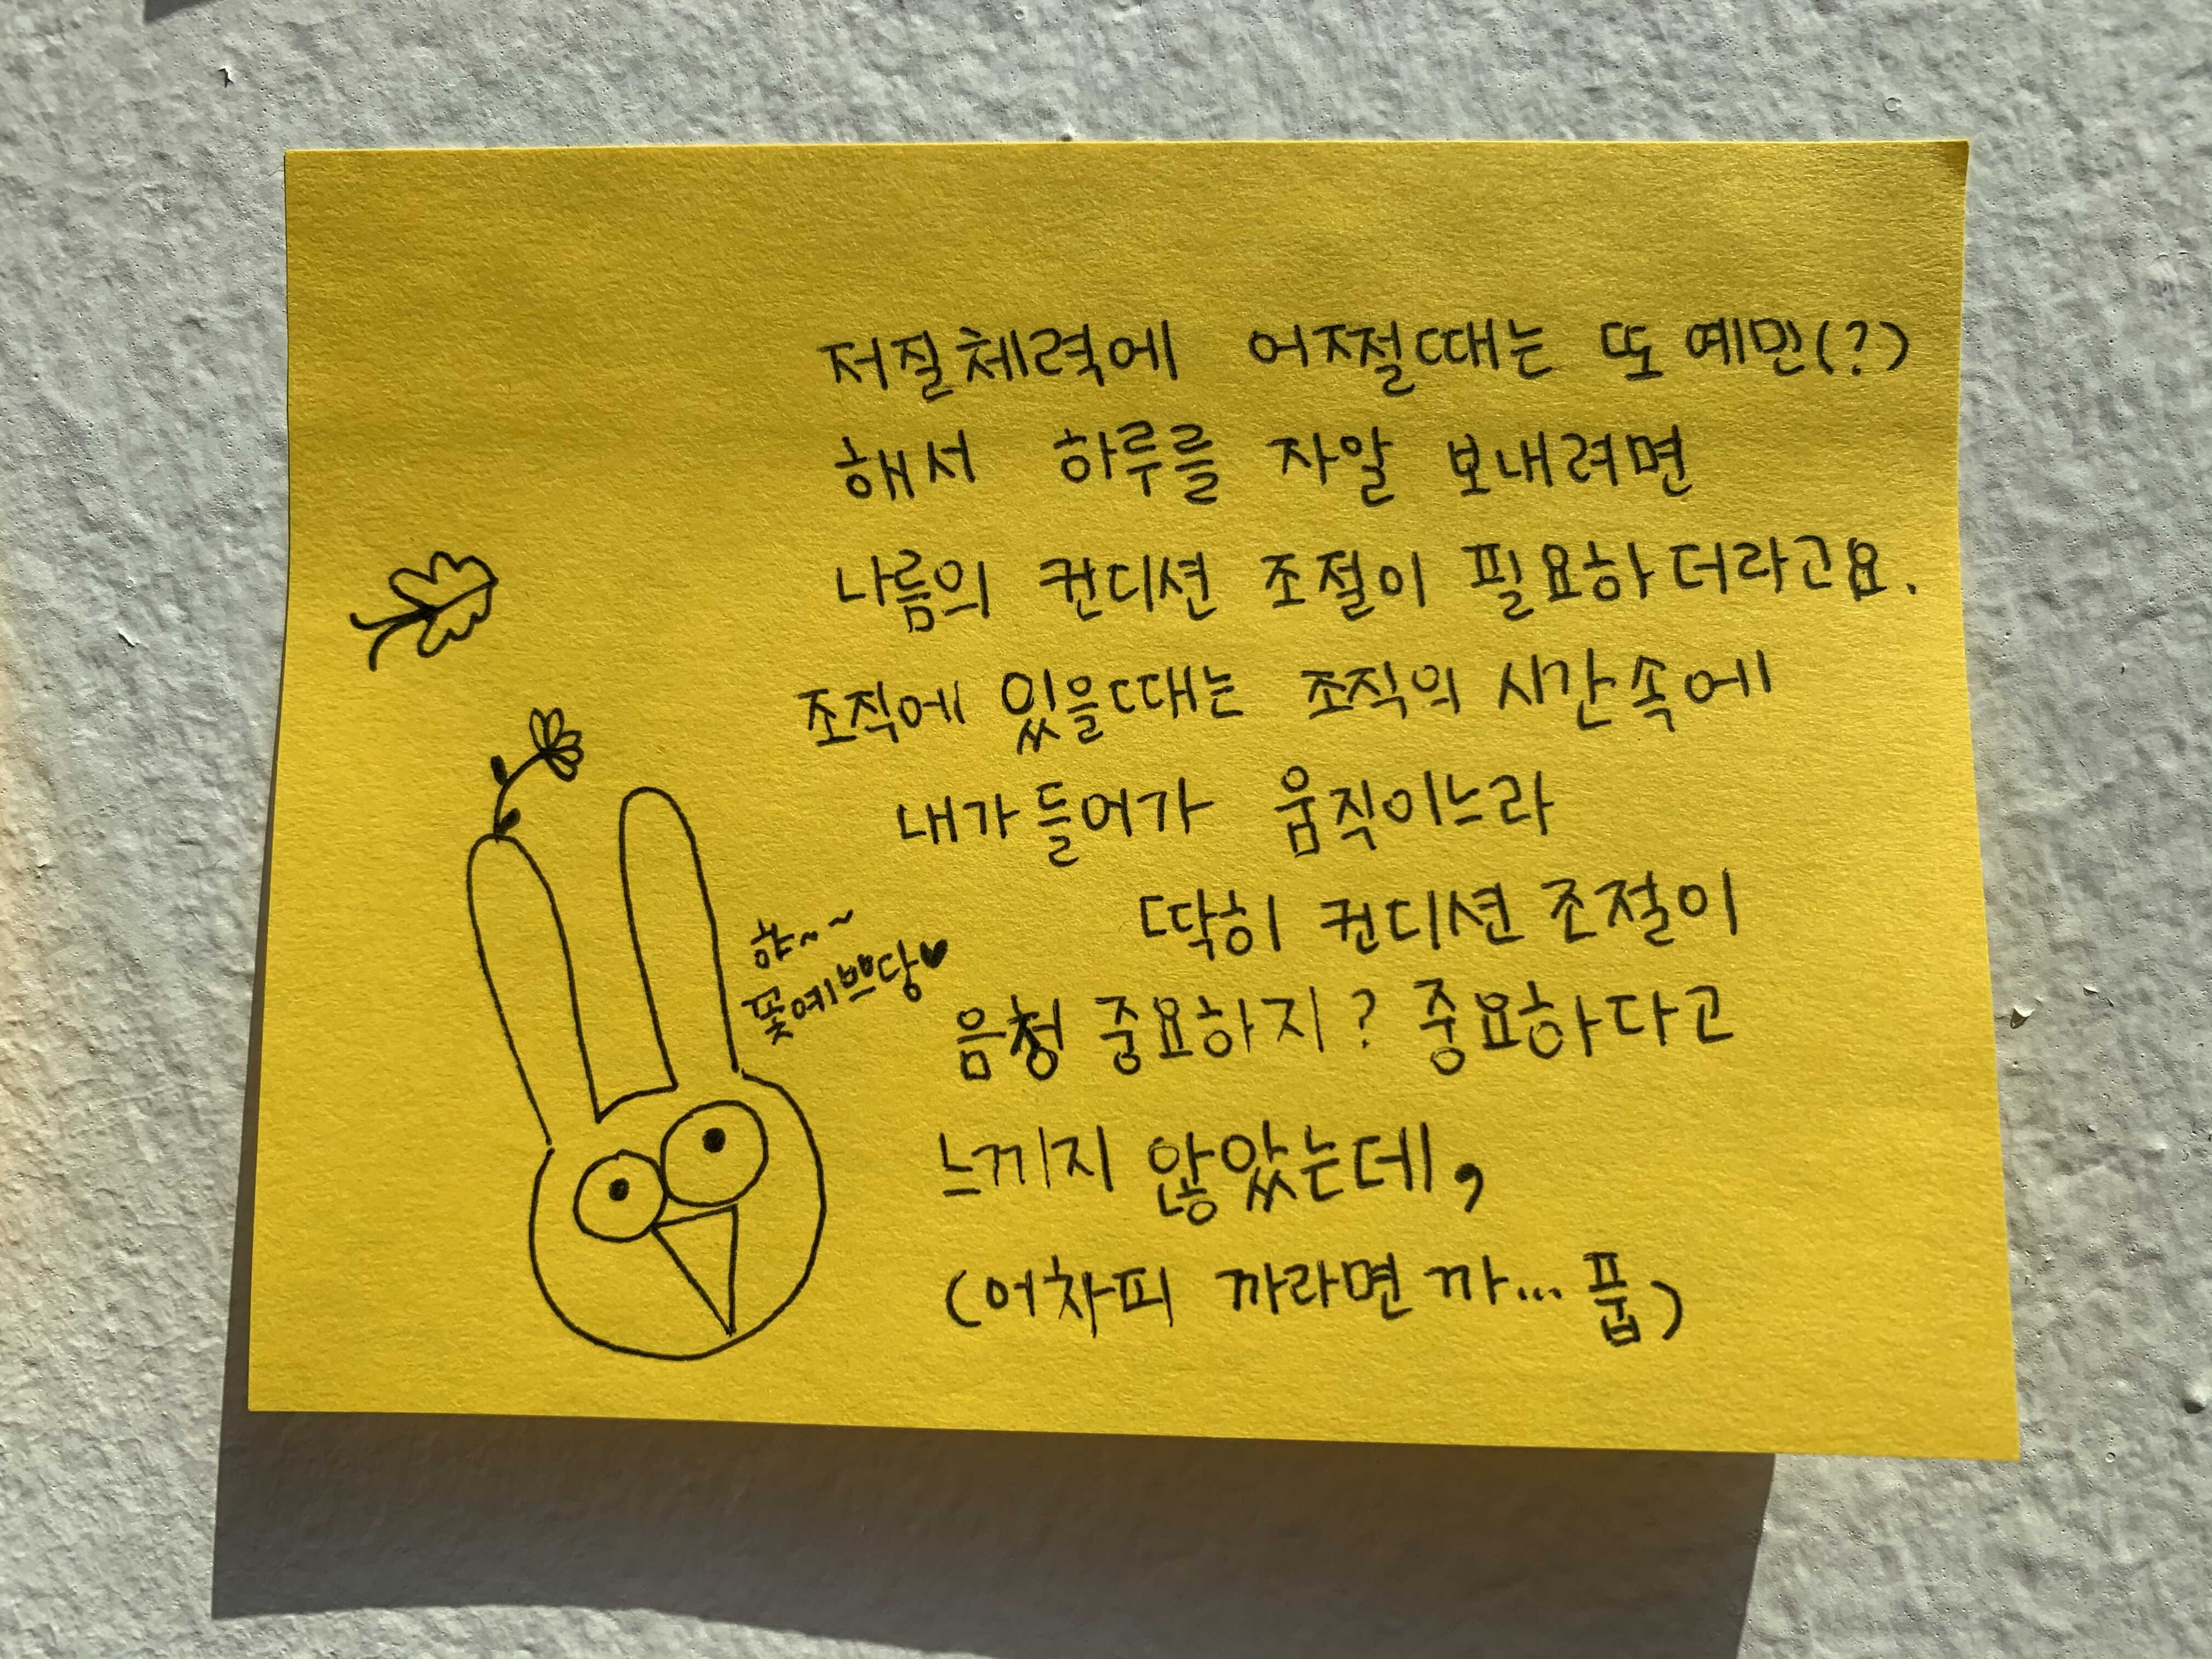 저질체력에 어쩔때는 또 예민(?)
해서 하루를 자알 보내려면
나름의 컨디션 조절이 필요하더라고요.
조직에 있을때는 조직의 시간속에
내가 들어가 움직이느라
딱히 컨디션 조절이
음청 중요하지? 중요하다고
느끼지 않았는데,
(어차피 까라면 까... 풉)
햐~~
꽃예쁘당♥